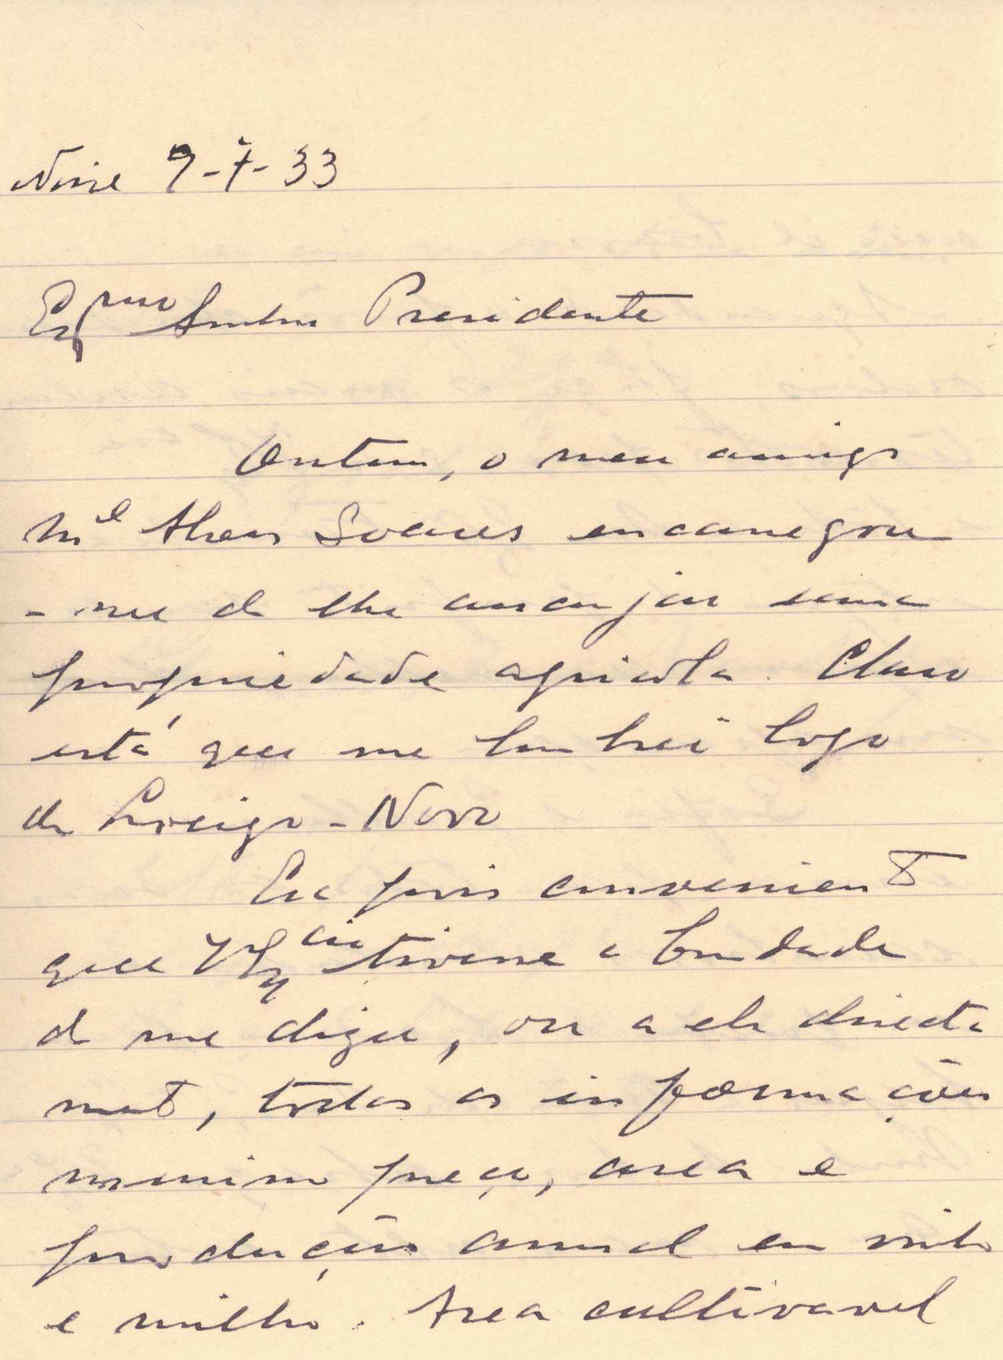 Nine 9-7-33
Exmo Senhor Presidente
Ontem, o meu amigo
Mel Alves Soares encarregou
-me de lhe arranjar uma
propriedade agricola. Claro
está que me lembrei logo
de Lousigo-Novo
Era pois convenient
que VExcia tivesse a bondade
de me dizer, ou a ele directa
ment, todas as informações
minimo preço, area e
produção anual em vinho
e milho. Area cultivavel